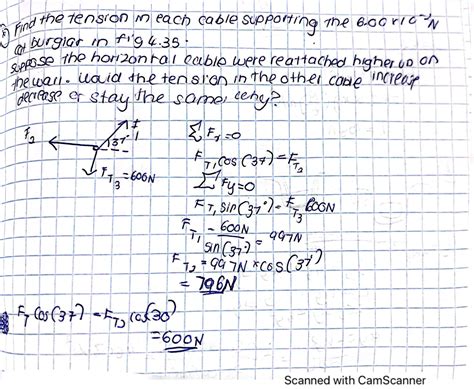 Find the tension in each cable supporting the 6.00x10⁻²N
cat burglar in fig 4.35.
suppose the horizontal cable were reattached higher up on
the wall. would the tension in the other cable increase
decrease or stay the same, why?
F₂ 37° F₁
F_T₃ = 600N
∑ Fₓ = 0
F_T₁ cos(37) = F_T₂
∑ Fy = 0
F_T₁ sin(37°) = F_T₃ 600N
F_T₁ = 600N / sin(37°) = 997N
F_T₂ = 997N × cos(37°)
= 796N
F_T cos(37) = F_T₂ cos(30)
= 600N
Scanned with CamScanner